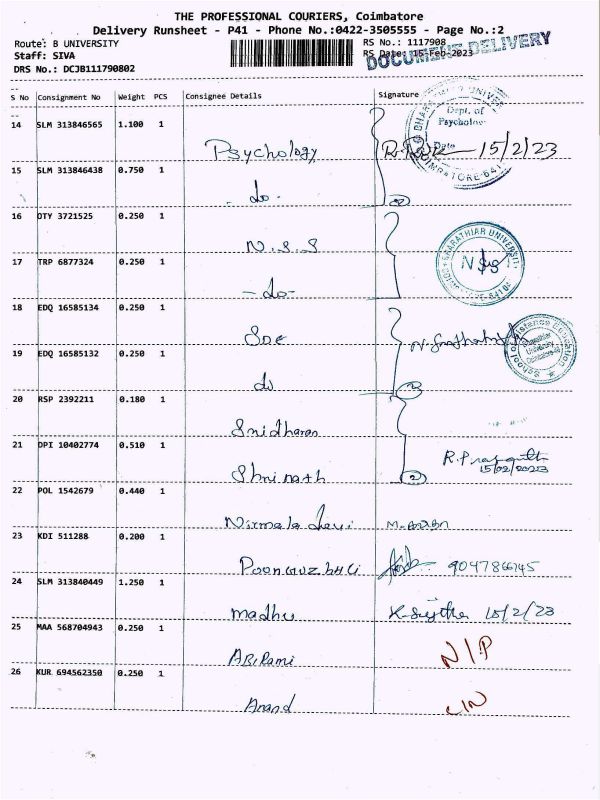 THE PROFESSIONAL COURIERS, Coimbatore
Delivery Runsheet - P41 - Phone No.:0422-3505555 - Page No.:2
Route: B UNIVERSITY
RS No.: 1117908
Staff: SIVA
RS Date: 15-Feb-2023
DOCUMENT DELIVERY
DRS No.: DCJB111790802
S No Consignment No Weight PCS Consignee Details Signature
14 SLM 313846565 1.100 1 Psychology
Dept. of
Psycholo
Date
15/2/23
15 SLM 313846438 0.750 1 - do -
16 OTY 3721525 0.250 1 N.S.S
BHARATHIAR UNIVERSITY
17 TRP 6877324 0.250 1 - do -
18 EDQ 16585134 0.250 1 SDE
School of Distance Education
Bharathiar
University
Coimbatore-46
19 EDQ 16585132 0.250 1 do
20 RSP 2392211 0.180 1 Sridharan
21 DPI 10402774 0.510 1 Shrinath
R.Prasanth
15/02/2023
22 POL 1542679 0.440 1 Nirmala Devi
23 KDI 511288 0.200 1 Poonguzhali
24 SLM 313840449 1.250 1 madhu 15/2/23
25 MAA 568704943 0.250 1 ABiRami N/P
26 KUR 694562350 0.250 1 Anand